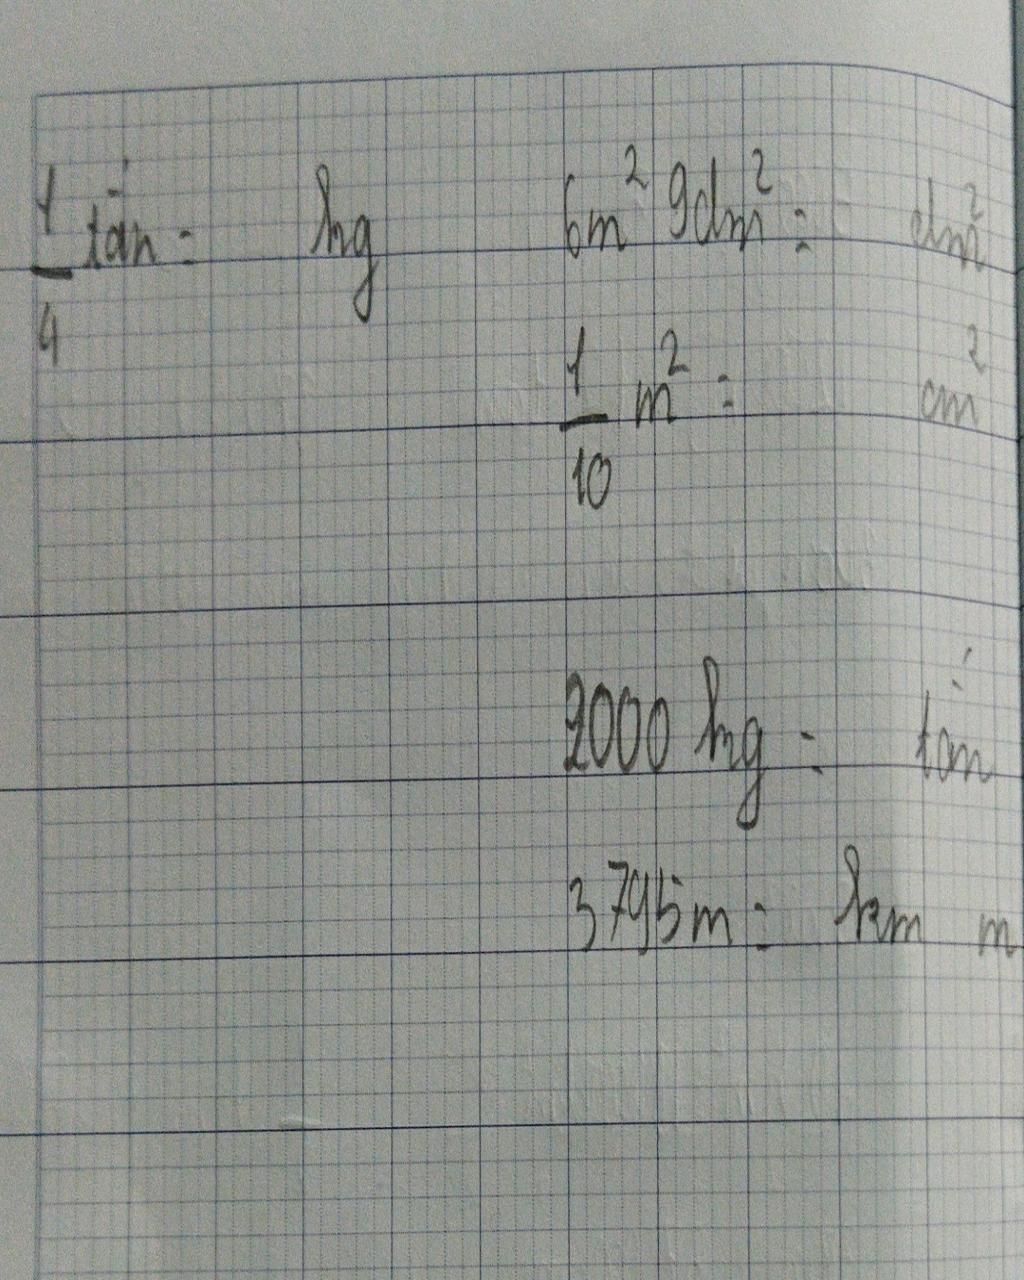 1/4 tấn = kg
6m² 9dm² = dm²
1/10 m² = cm²
2000 kg = tấn
3795m = km m